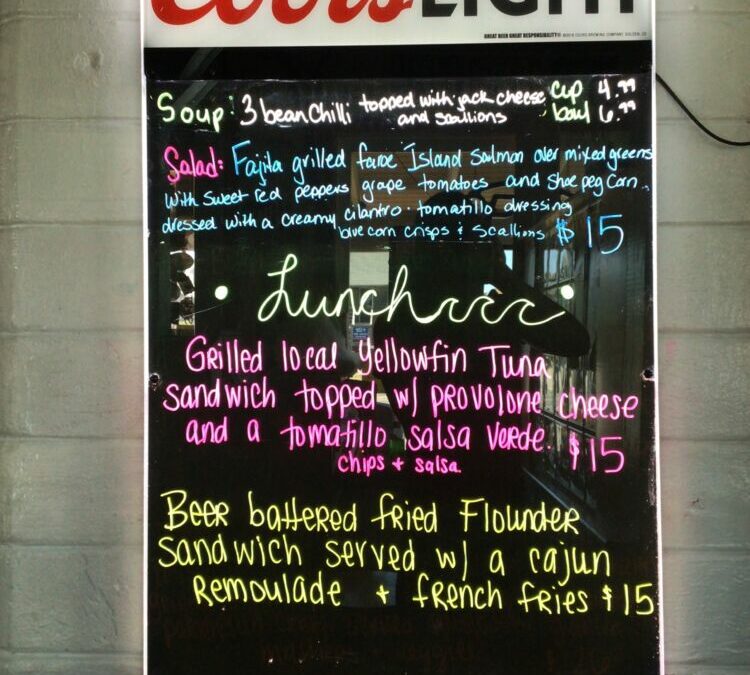 Coors LIGHT
GREAT BEER GREAT RESPONSIBILITY
Soup: 3 bean Chilli topped with jack cheese cup 4.99
and scallions bowl 6.99
Salad: Fajita grilled faroe Island Salmon over mixed greens
with sweet red peppers grape tomatoes and Shoe peg Corn
dressed with a creamy cilantro - tomatillo dressing
blue corn crisps & scallions $15
Lunch
Grilled local Yellowfin Tuna
sandwich topped w/ provolone cheese
and a tomatillo salsa verde. $15
chips + salsa
Beer battered fried Flounder
sandwich served w/ a cajun
Remoulade + french fries $15